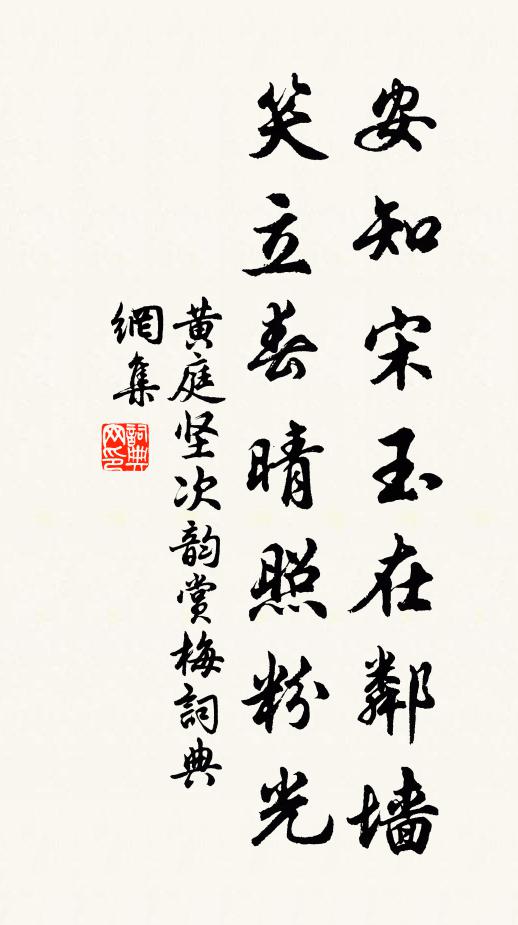 安知宋玉在鄰墙
笑立春晴照粉光
黄庭坚次韵賞梅詞典
網集
詞典网印